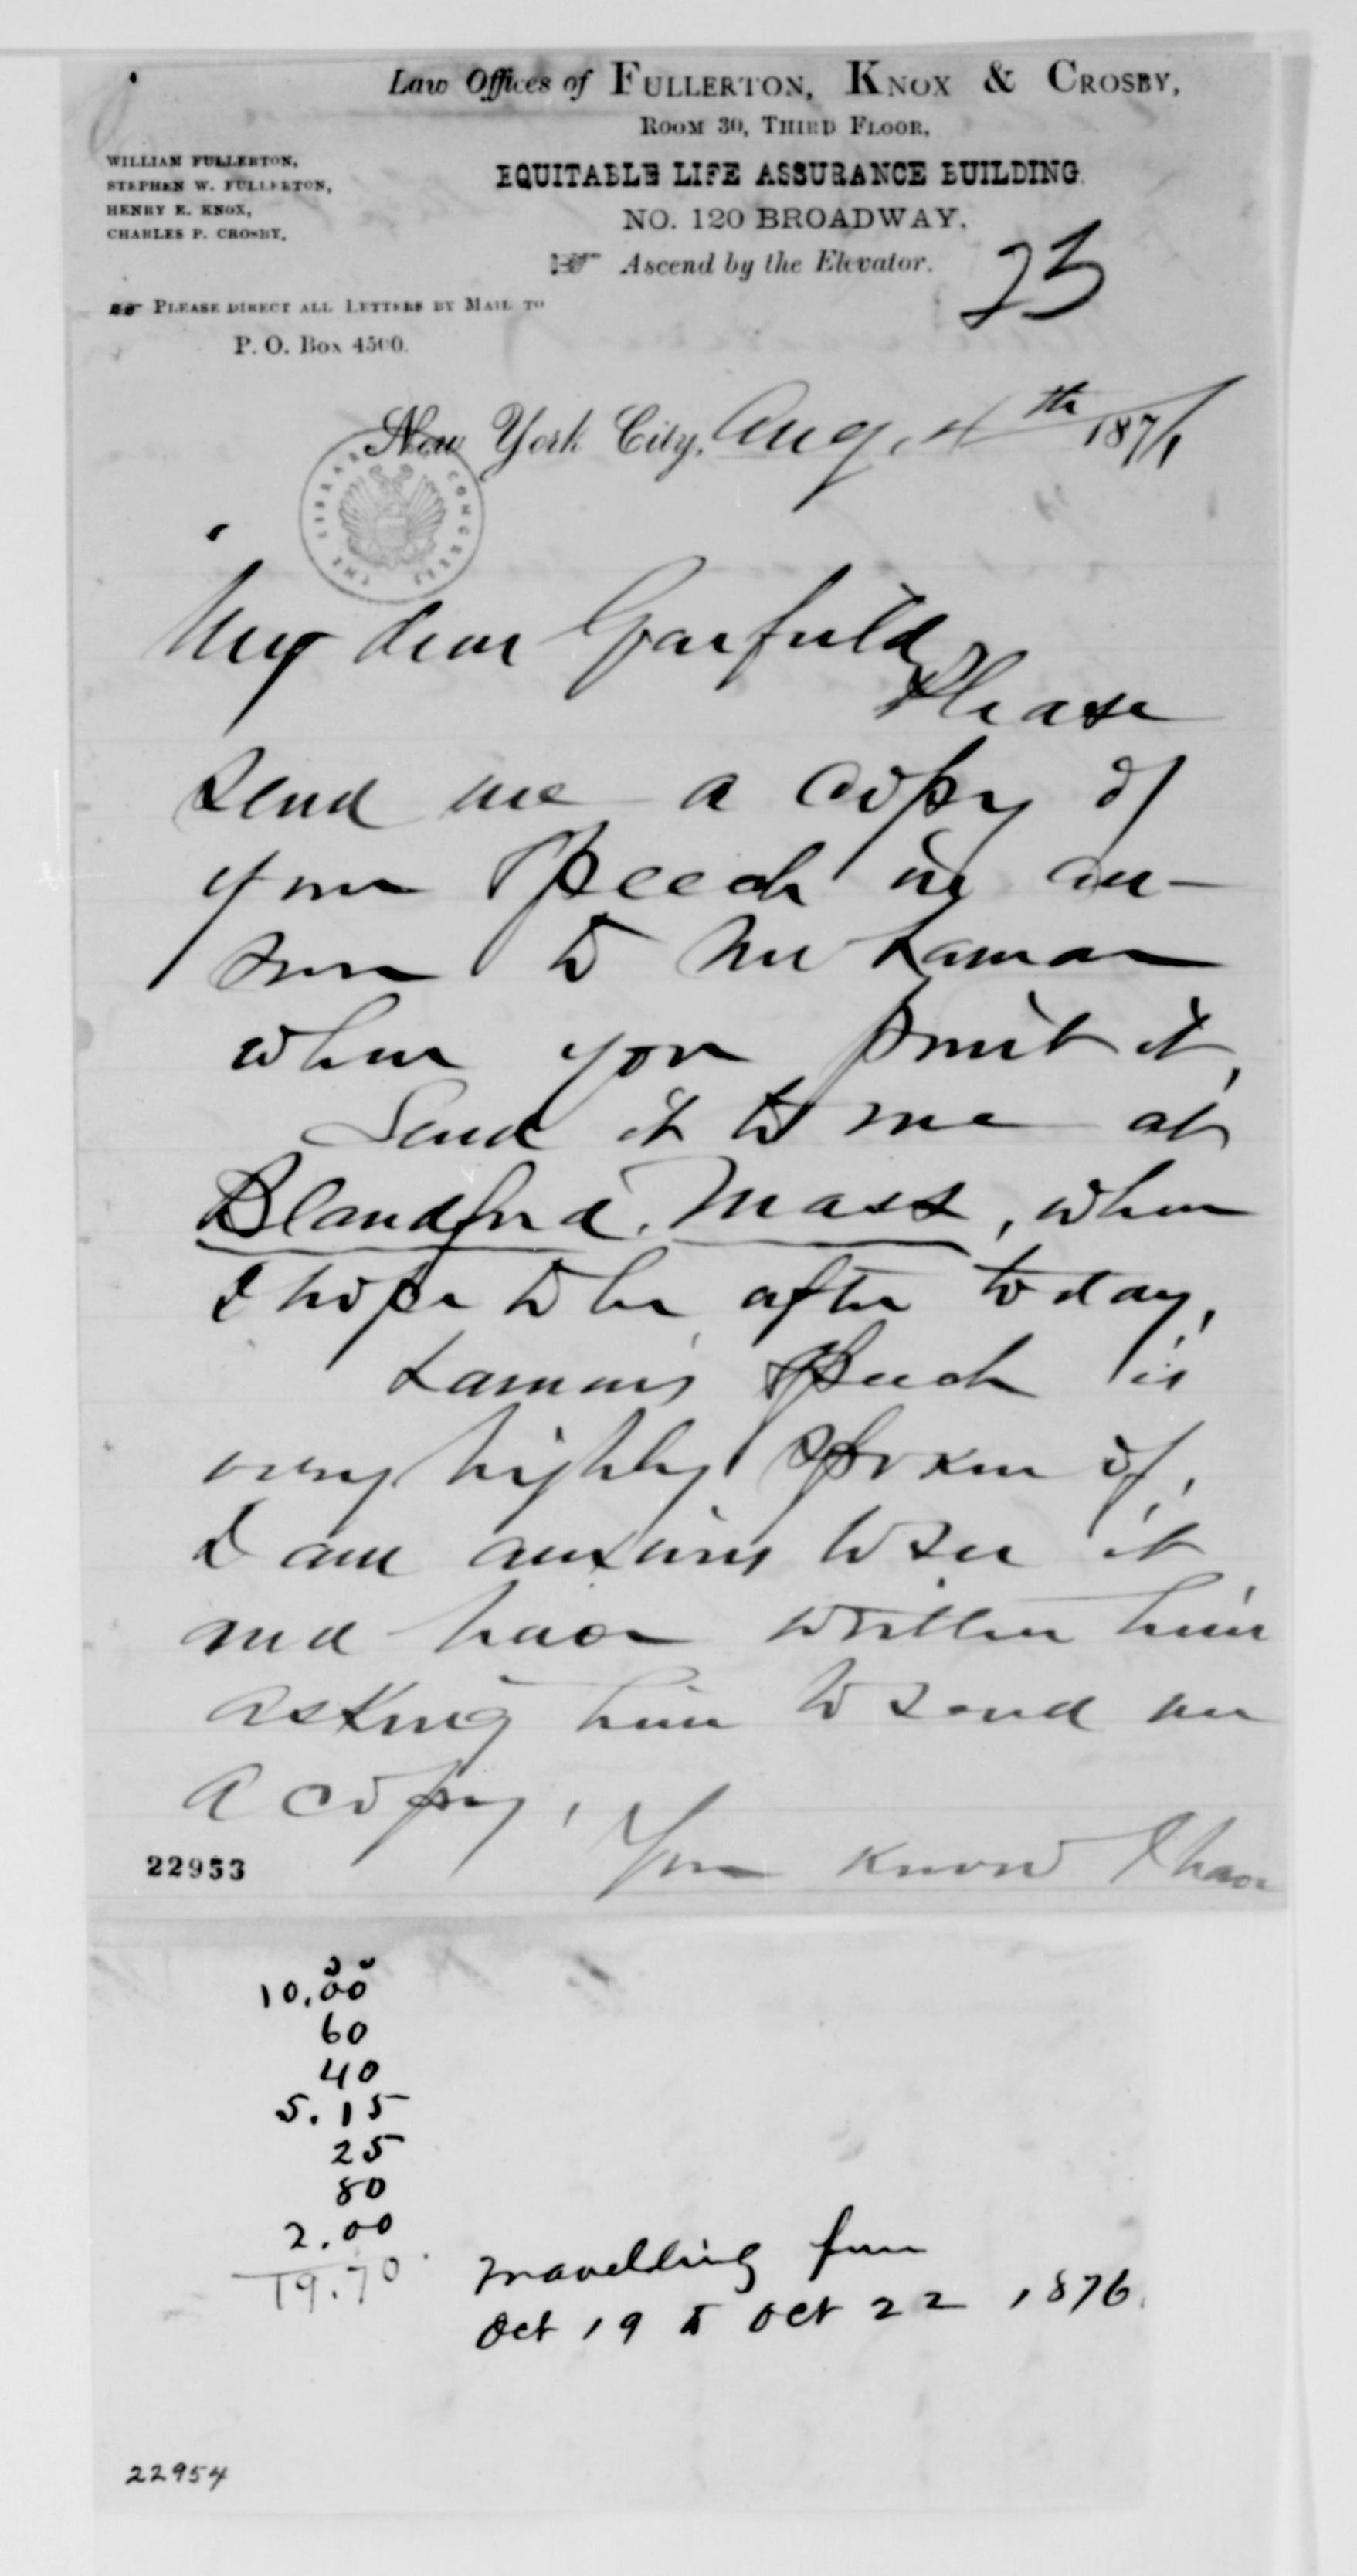 Law Offices of FULLERTON, KNOX & CROSBY,
ROOM 30, THIRD FLOOR,
WILLIAM FULLERTON,
STEPHEN W. FULLERTON,
HENRY E. KNOX,
CHARLES P. CROSBY.
EQUITABLE LIFE ASSURANCE BUILDING.
NO. 120 BROADWAY.
☞ Ascend by the Elevator.
23
☞ PLEASE DIRECT ALL LETTERS BY MAIL TO
P. O. Box 4500.
New York City, Aug. 4th 187
THE LIBRARY CONGRESS
My dear Garfield
Please
send me a copy of
your speech in an-
swer to Mr Lamar
when you print it,
Send it to me at
Blandford, Mass, where
I hope to be after today,
Lamar's speech is
very highly spoken of,
I am anxious to see it
and have written him
asking him to send me
a copy, You know I have
22953
10.00
60
40
5.15
25
80
2.00
19.70
Travelling from
Oct 19 to Oct 22, 1876.
22954